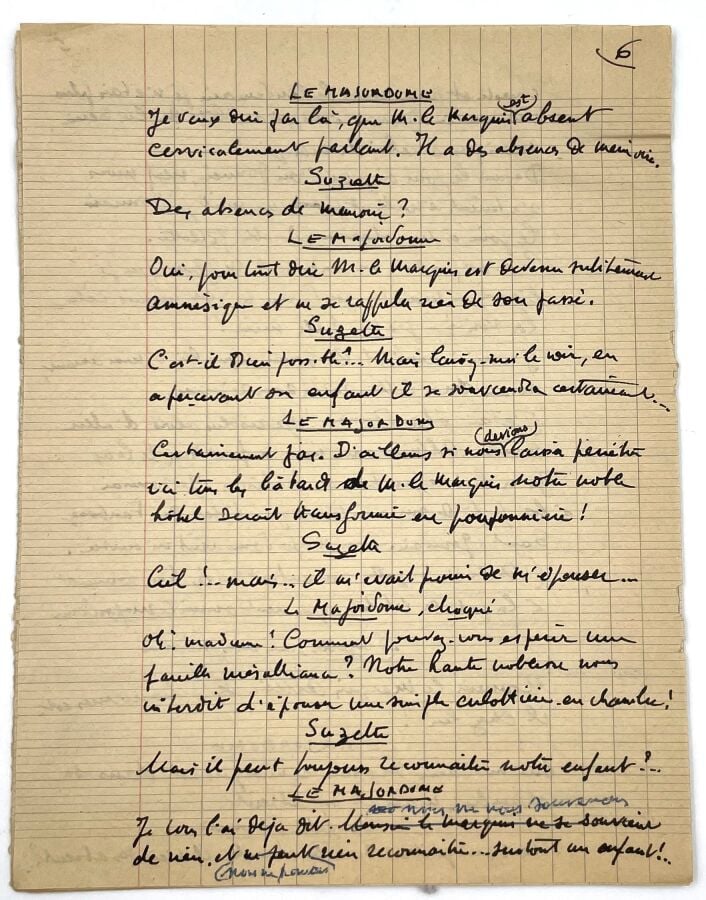 6
LE MAJORDOME
Je veux dire par là, que M. le Marquis est absent
cervicalement parlant. Il a des absences de mémoire.
Suzette
Des absences de mémoire ?
LE Majordome
Oui, pour tout dire M. le Marquis est devenu subitement
amnésique et ne se rappelle rien de son passé.
Suzette
C'est-il Dieu possible !.. Mais laissez-moi le voir, en
apercevant son enfant il se souviendra certainement...
LE MAJORDOME
Certainement pas. D'ailleurs si nous devions laisser pénétrer
ici tous les bâtards de M. le Marquis notre noble
hôtel serait transformé en pouponnière !
Suzette
Ciel !.. mais... il m'avait promis de m'épouser...
Le Majordome, choqué
Oh ! madame ! Comment pouvez-vous espérer une
pareille mésalliance ? Notre haute noblesse nous
interdit d'épouser une simple culottière en chambre !
Suzette
Mais il peut toujours reconnaître notre enfant ?..
LE MAJORDOME
nous ne nous souvenons
Je vous l'ai déjà dit. le marquis ne se souvient
de rien, et ne peut rien reconnaître... surtout un enfant !..
nous ne pouvons